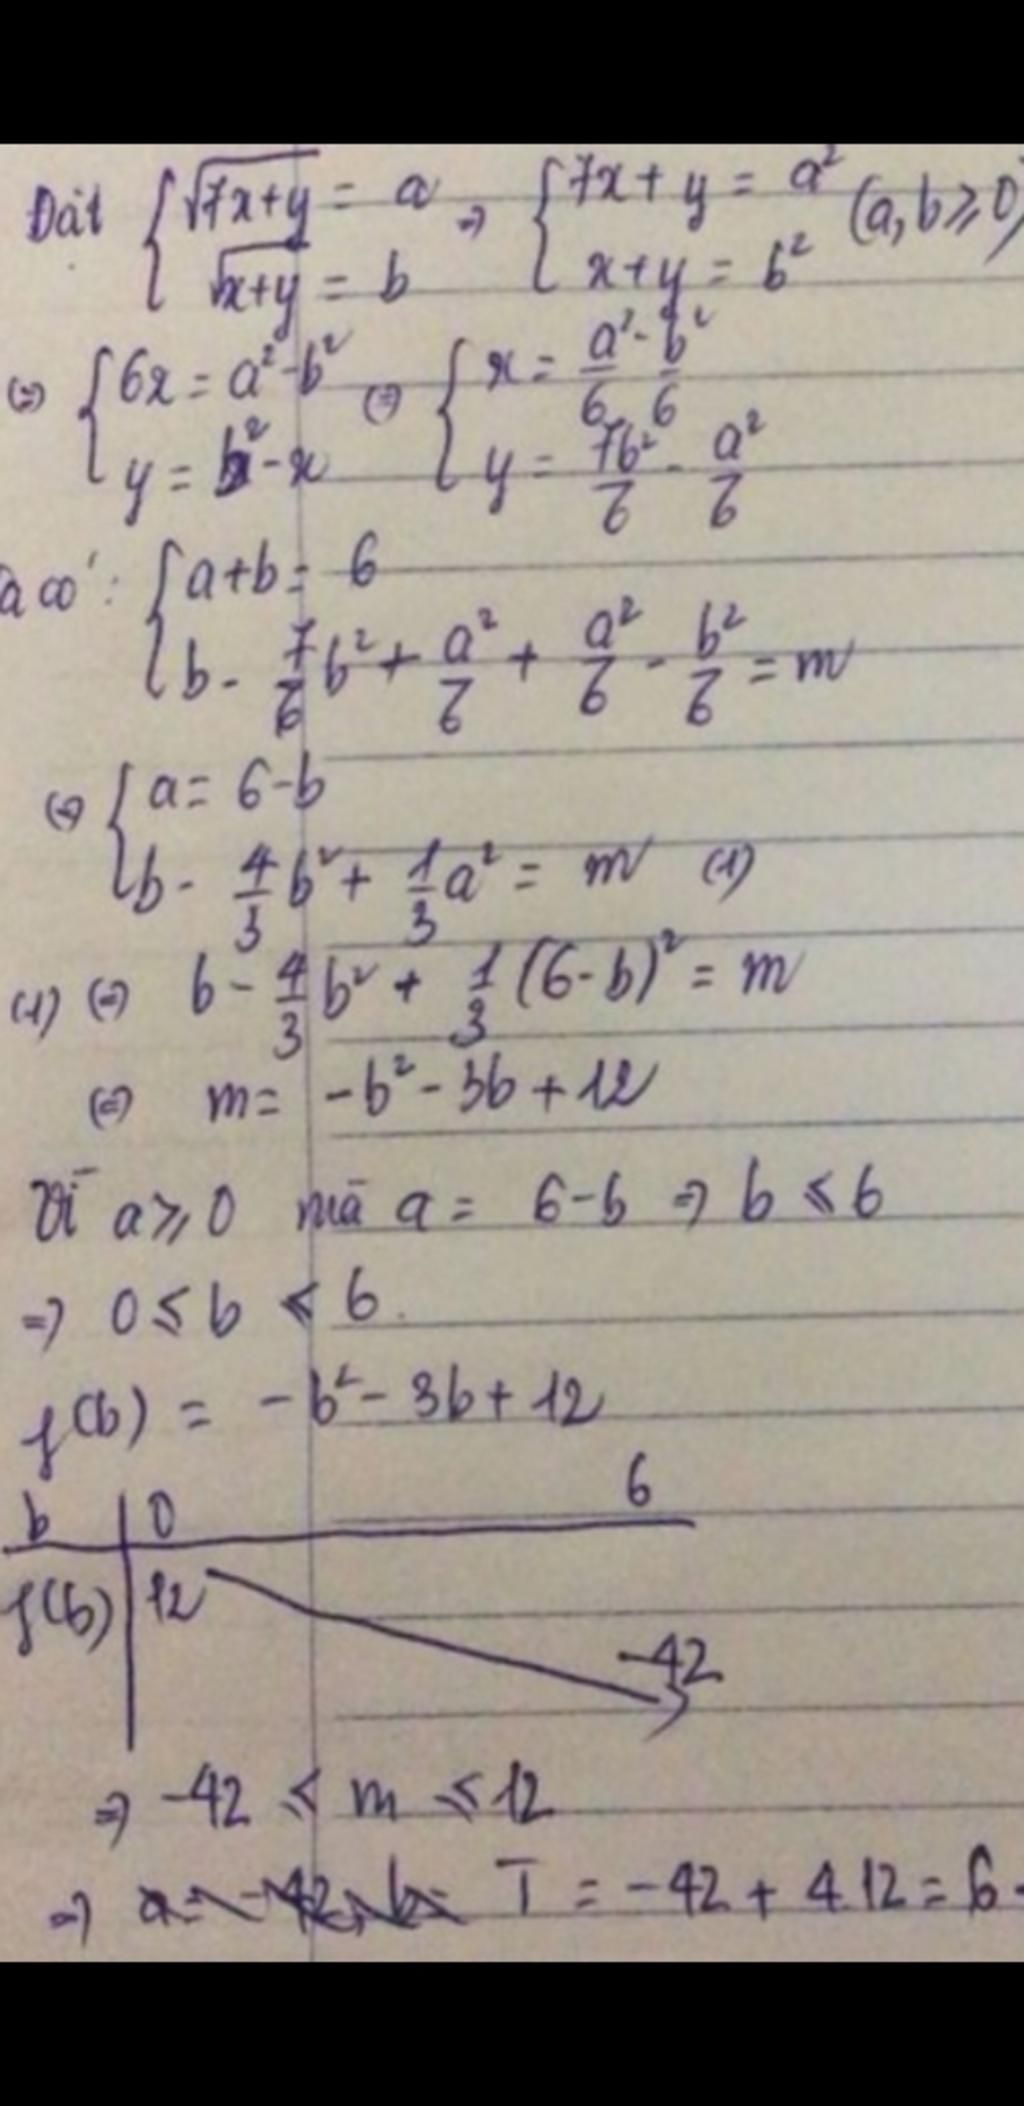 Đặt { √7x+y = a ⇒ { 7x+y = a² (a,b ≥ 0)
√x+y = b x+y = b²
(=) { 6x = a²-b² (=) { x = a²/6 - b²/6
y = b²-x y = 7b²/6 - a²/6
a có: { a+b = 6
b - 7/6 b² + a²/6 + a²/6 - b²/6 = m
(=) { a = 6-b
b - 4/3 b² + 1/3 a² = m (1)
(1) (=) b - 4/3 b² + 1/3 (6-b)² = m
(=) m = -b² - 3b + 12
Vì a ≥ 0 mà a = 6-b => b ≤ 6
=> 0 ≤ b ≤ 6.
f(b) = -b² - 3b + 12
b 0 6
f(b) 12 -42
=> -42 ≤ m ≤ 12
=> T = -42 + 4.12 = 6.